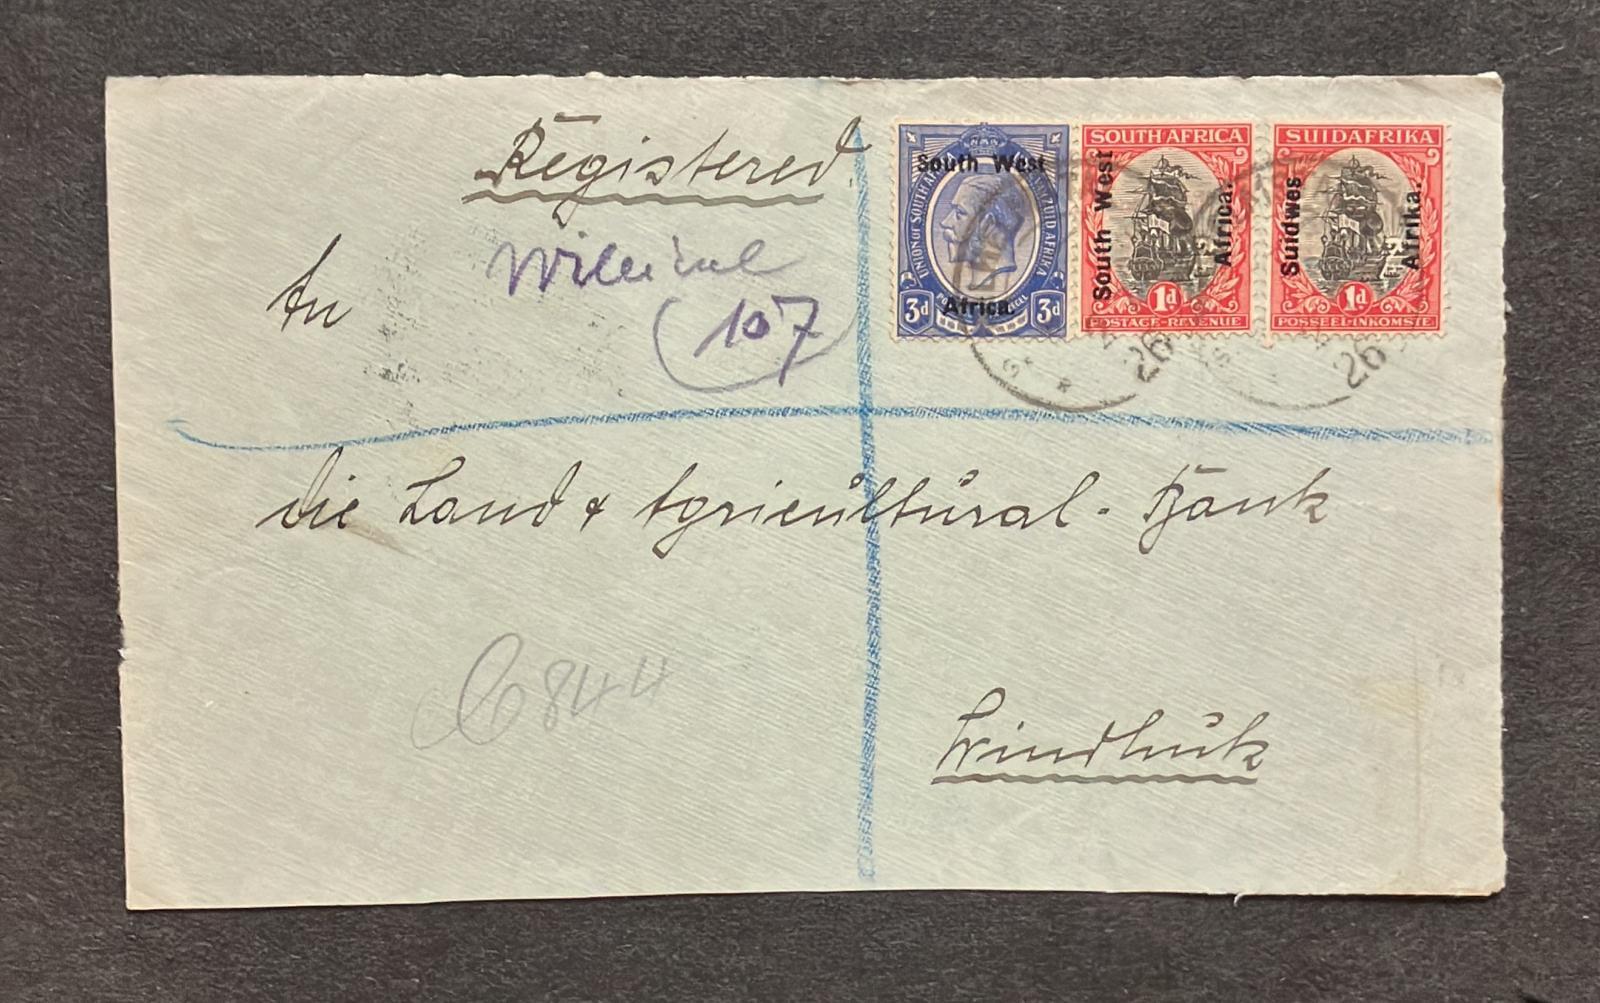 Registered
107
An
South West
Africa.
UNION OF SOUTH AFRICA
ZUID AFRIKA
3d
3d
SOUTH AFRICA
South West
Africa.
1d
POSTAGE-REVENUE
SUIDAFRIKA
Suidwes
Afrika.
1d
POSSEEL-INKOMSTE
26
26
die Land & Agricultural-Bank
6844
Windhuk